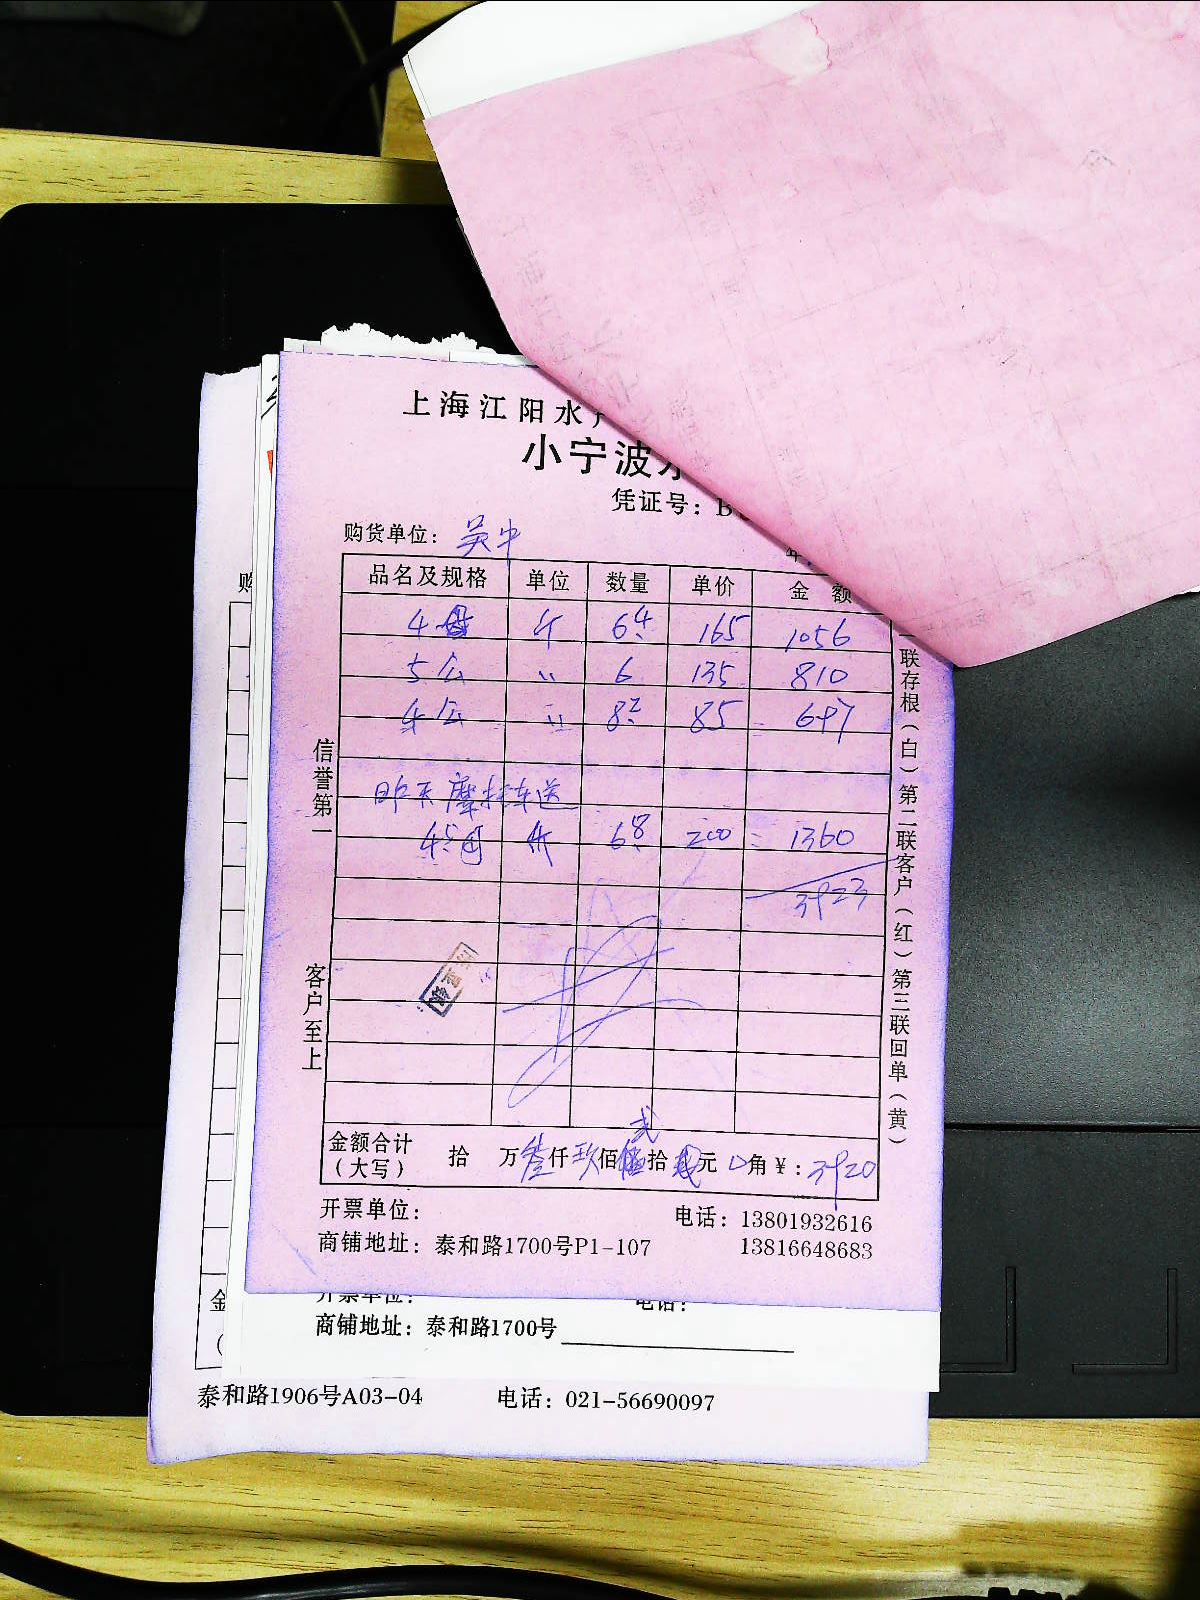 上海江阳水
小宁波水
凭证号：B
购货单位：吴中
年
品名及规格 单位 数量 单价 金 额
4母 斤 6.4 165 1056
5公 〃 6 135 810
4公 〃 8.2 85 697
昨天摩托车送
4.5母 斤 6.8 200 = 1360
3923
信誉第一
客户至上
联存根（白）第二联客户（红）第三联回单（黄）
金额合计（大写） 拾 万叁仟玖佰贰拾 元 0角 ￥：3920
开票单位：
电话：13801932616
商铺地址：泰和路1700号P1-107
13816648683
开票单位：
电话：
商铺地址：泰和路1700号
泰和路1906号A03-04 电话：021-56690097
购
金
（